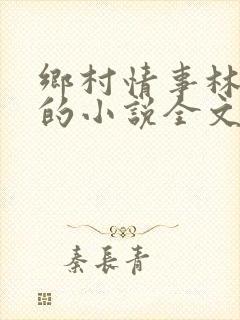 鄉村情事林
的小說全文
秦長青